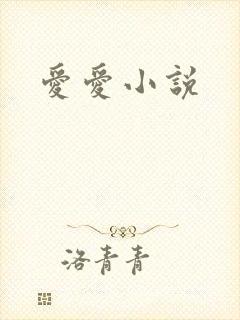 愛愛小說
洛青青